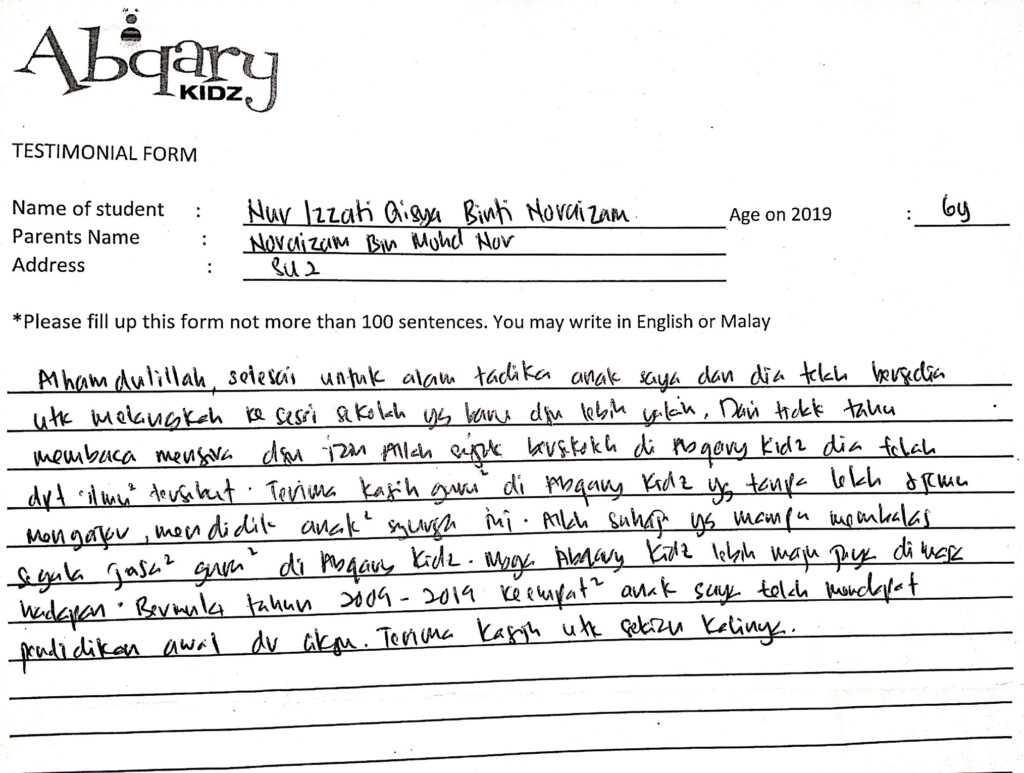 Abqary
KIDZ
TESTIMONIAL FORM
Name of student : Nur Izzati Qisya Binti Noraizam Age on 2019 : 6y
Parents Name : Noraizam Bin Mohd Nor
Address : SU2
*Please fill up this form not more than 100 sentences. You may write in English or Malay
Alhamdulillah, selesai untuk alam tadika anak saya dan dia telah bersedia
utk melangkah ke sesi sekolah yg baru dgn lebih yakin. Dari tidak tahu
membaca mengira dgn izin Allah sejak bersekolah di Abqary Kidz dia telah
dpt ilmu² tersebut. Terima kasih guru² di Abqary Kidz yg tanpa lelah
mengajar, mendidik anak² syurga ini. Allah sahaja yg mampu membalas
segala jasa² guru² di Abqary Kidz. Moga Abqary Kidz lebih maju jaya di masa
hadapan. Bermula tahun 2009 - 2019 keempat² anak saya telah mendapat
pendidikan awal dr cikgu. Terima kasih utk sekian kalinya.